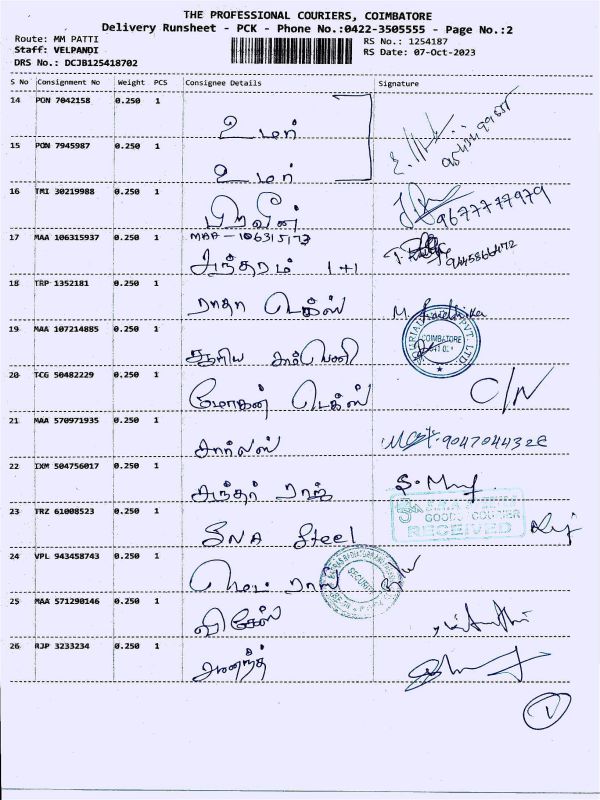 THE PROFESSIONAL COURIERS, COIMBATORE
Delivery Runsheet - PCK - Phone No.:0422-3505555 - Page No.:2
Route: MM PATTI RS No.: 1254187
Staff: VELPANDI RS Date: 07-Oct-2023
DRS No.: DCJB125418702
S No Consignment No Weight PCS Consignee Details Signature
14 PON 7042158 0.250 1 உமர்
15 PON 7945987 0.250 1 உமர்
16 TMI 30219988 0.250 1 பிரவீன் 9677777979
17 MAA 106315937 0.250 1 MAA-106315173
1+1
18 TRP 1352181 0.250 1 ராதா டெக்ஸ்
19 MAA 107214885 0.250 1
COIMBATORE
20 TCG 50482229 0.250 1 மோகன் டெக்ஸ் C/N
21 MAA 570971935 0.250 1 சார்லஸ்
22 IXM 504756017 0.250 1
23 TRZ 61008523 0.250 1 SNA Steel
GOODS COURIER
RECEIVED
24 VPL 943458743 0.250 1
SECURITY
25 MAA 571290146 0.250 1
26 RJP 3233234 0.250 1 ஆனந்த்